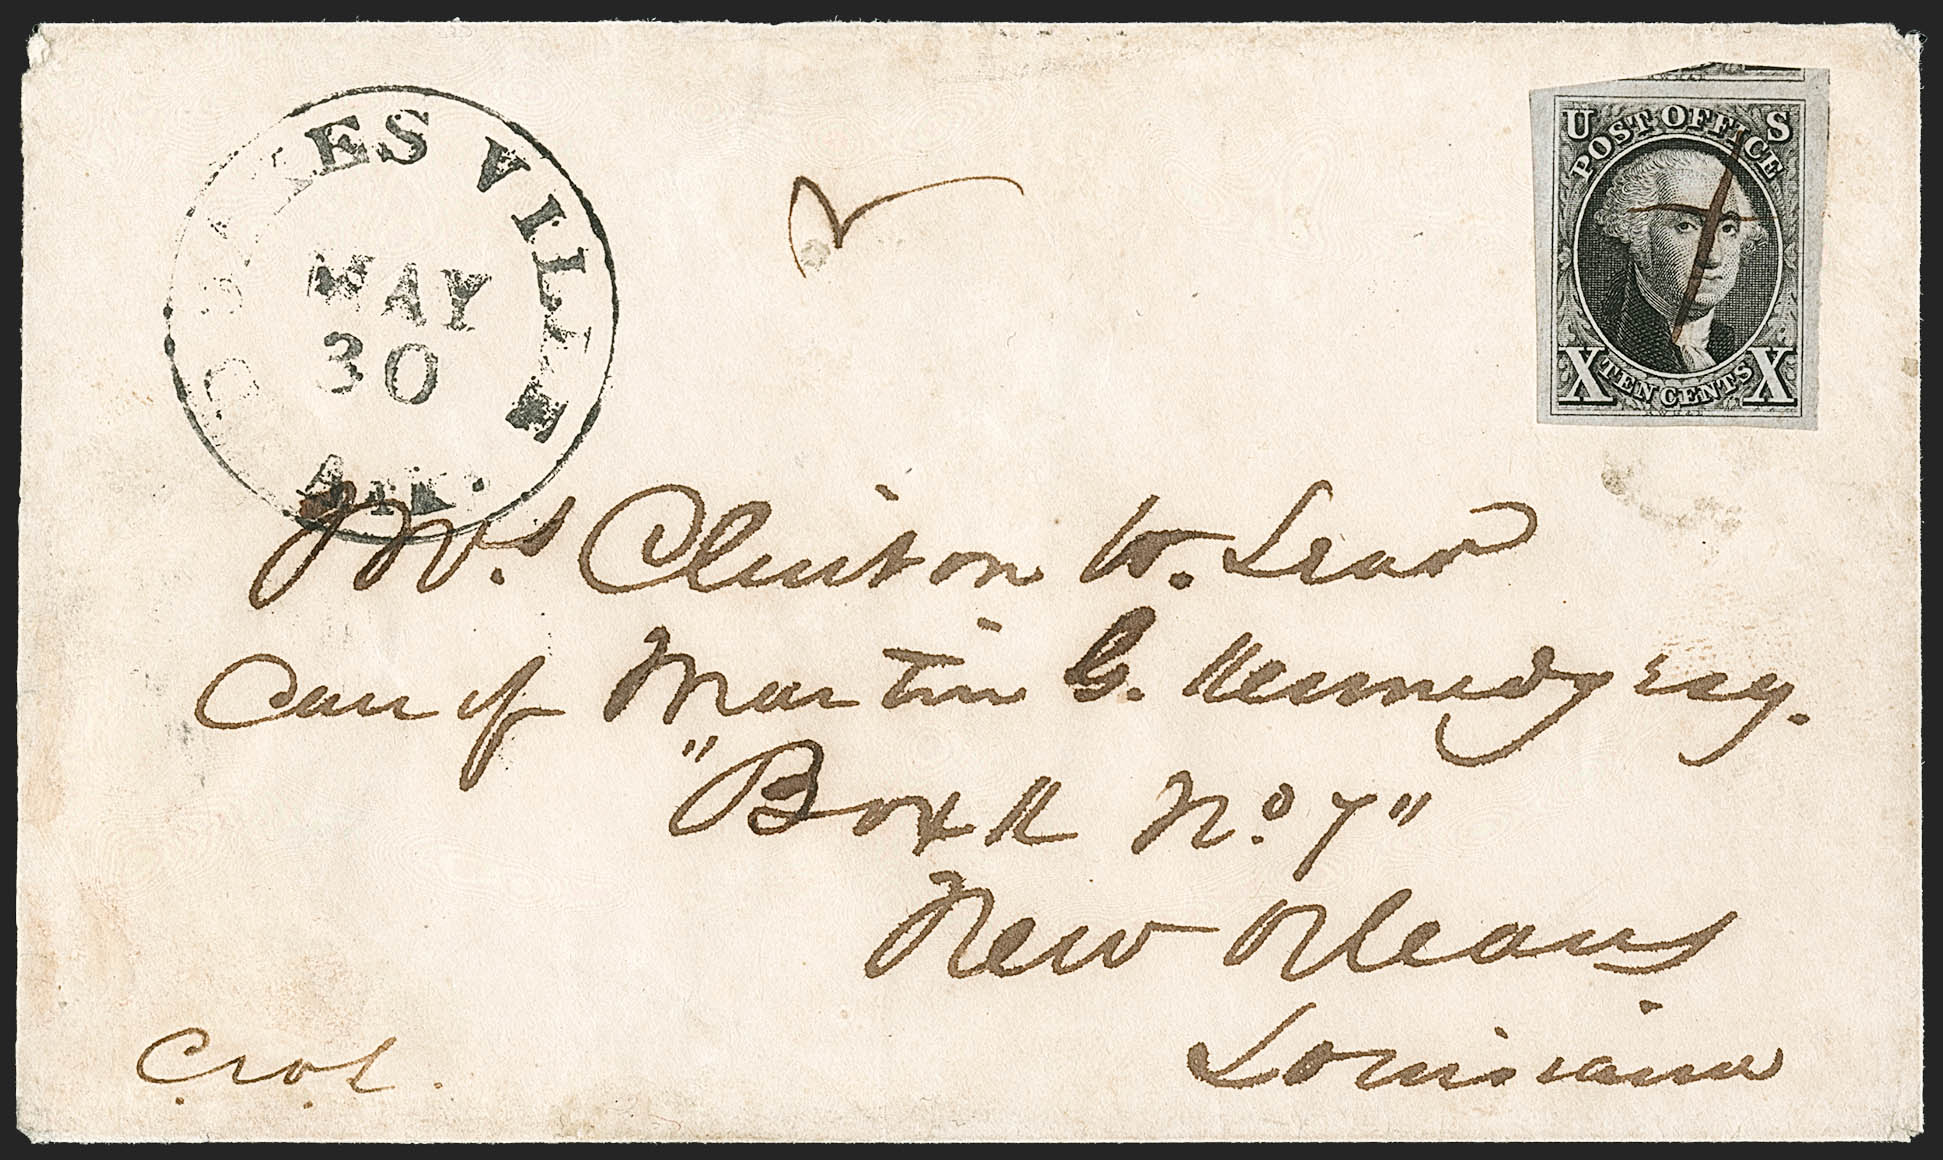 ES VILLE
MAY
30
Ark.
U S
POST OFFICE
X TEN CENTS X
Mrs Clinton W. Lear
Care of Martin G. Kennedy Esq.
"Box K No. 7"
New Orleans
Louisiana